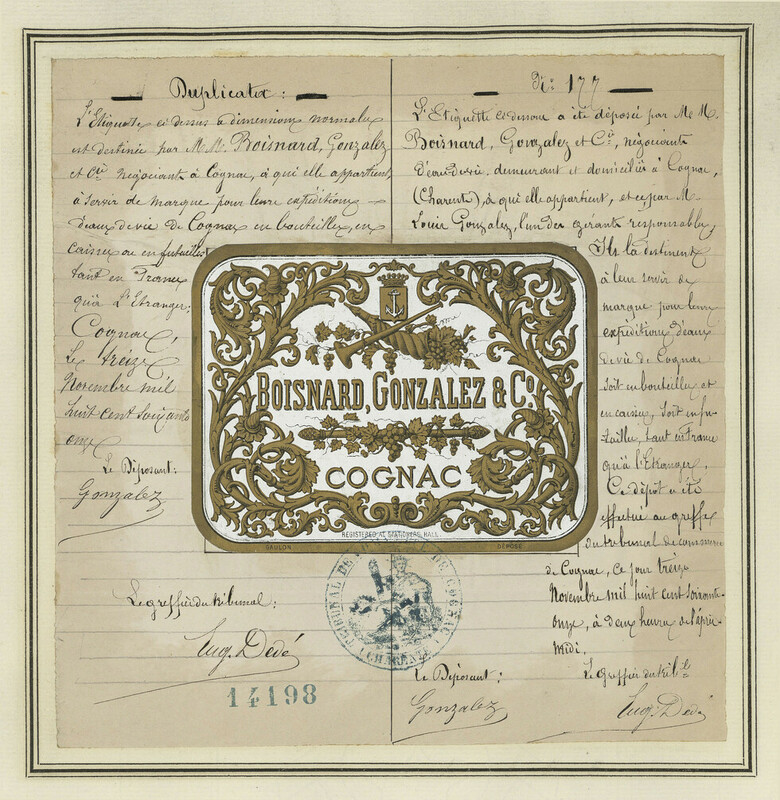 Duplicata :
L'Etiquette ci dessus à dimensions normales
est destinée par M.M. Boisnard, Gonzalez
et Cie négociants à Cognac, à qui elle appartient,
à servir de marque pour leurs expéditions
d'eaux de vie de Cognac en bouteilles, en
caisses ou en futailles
tant en France
qu'à L'Etranger.
Cognac,
Le treize
Novembre mil
huit cent soixante
onze
Le Déposant :
Gonzalez
Le greffier du tribunal :
Eug. Dédé
14198
No. 177
L'Etiquette ci dessous a été déposée par M.M.
Boisnard, Gonzalez et Cie, négociants
d'eau de vie, demeurant et domiciliés à Cognac,
(Charente), à qui elle appartient, et ce, par M.
Louis Gonzalez, l'un des gérants responsables,
Ils la destinent
à leur servir de
marque pour leurs
expéditions d'eaux
de vie de Cognac
soit en bouteilles et
en caisses, soit en fu-
tailles, tant en France
qu'à l'Etranger.
Ce dépôt a été
effectué au greffe
du tribunal de commerce
de Cognac, ce jour treize
Novembre mil huit cent soixante-
onze, à deux heures de l'après-
midi.
Le Déposant :
Gonzalez
Le greffier du trib.
Eug. Dédé
BOISNARD, GONZALEZ & Co.
COGNAC
REGISTERED AT STATIONERS HALL
GAULON
DÉPOSÉ
TRIBUNAL DE COMMERCE DE COGNAC
(CHARENTE)